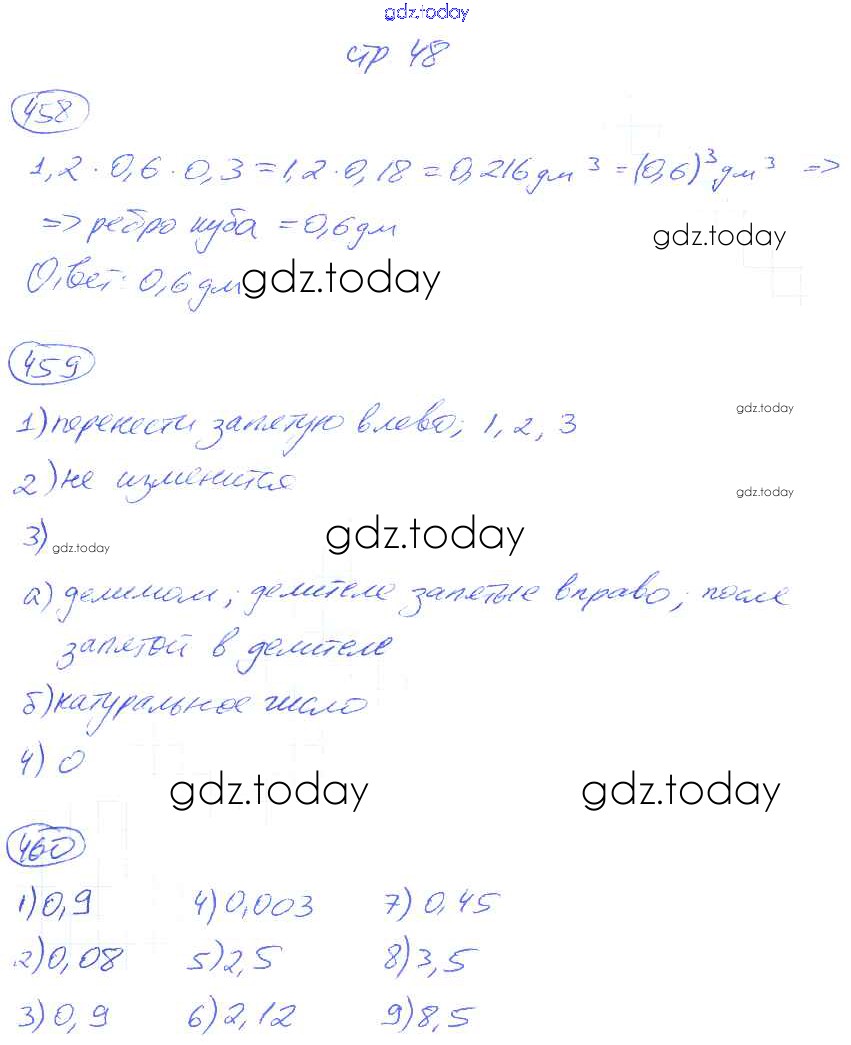 gdz.today
стр 48
458
1,2 · 0,6 · 0,3 = 1,2 · 0,18 = 0,216 дм³ = (0,6)³ дм³ =>
=> ребро куба = 0,6 дм
gdz.today
Ответ: 0,6 дм
gdz.today
459
1) перенести запятую влево; 1, 2, 3
gdz.today
2) не изменится
gdz.today
3)
gdz.today
gdz.today
а) делимом; делителе запятые вправо; после
запятой в делителе
б) натуральное число
4) 0
gdz.today
gdz.today
460
1) 0,9 4) 0,003 7) 0,45
2) 0,08 5) 2,5 8) 3,5
3) 0,9 6) 2,12 9) 8,5